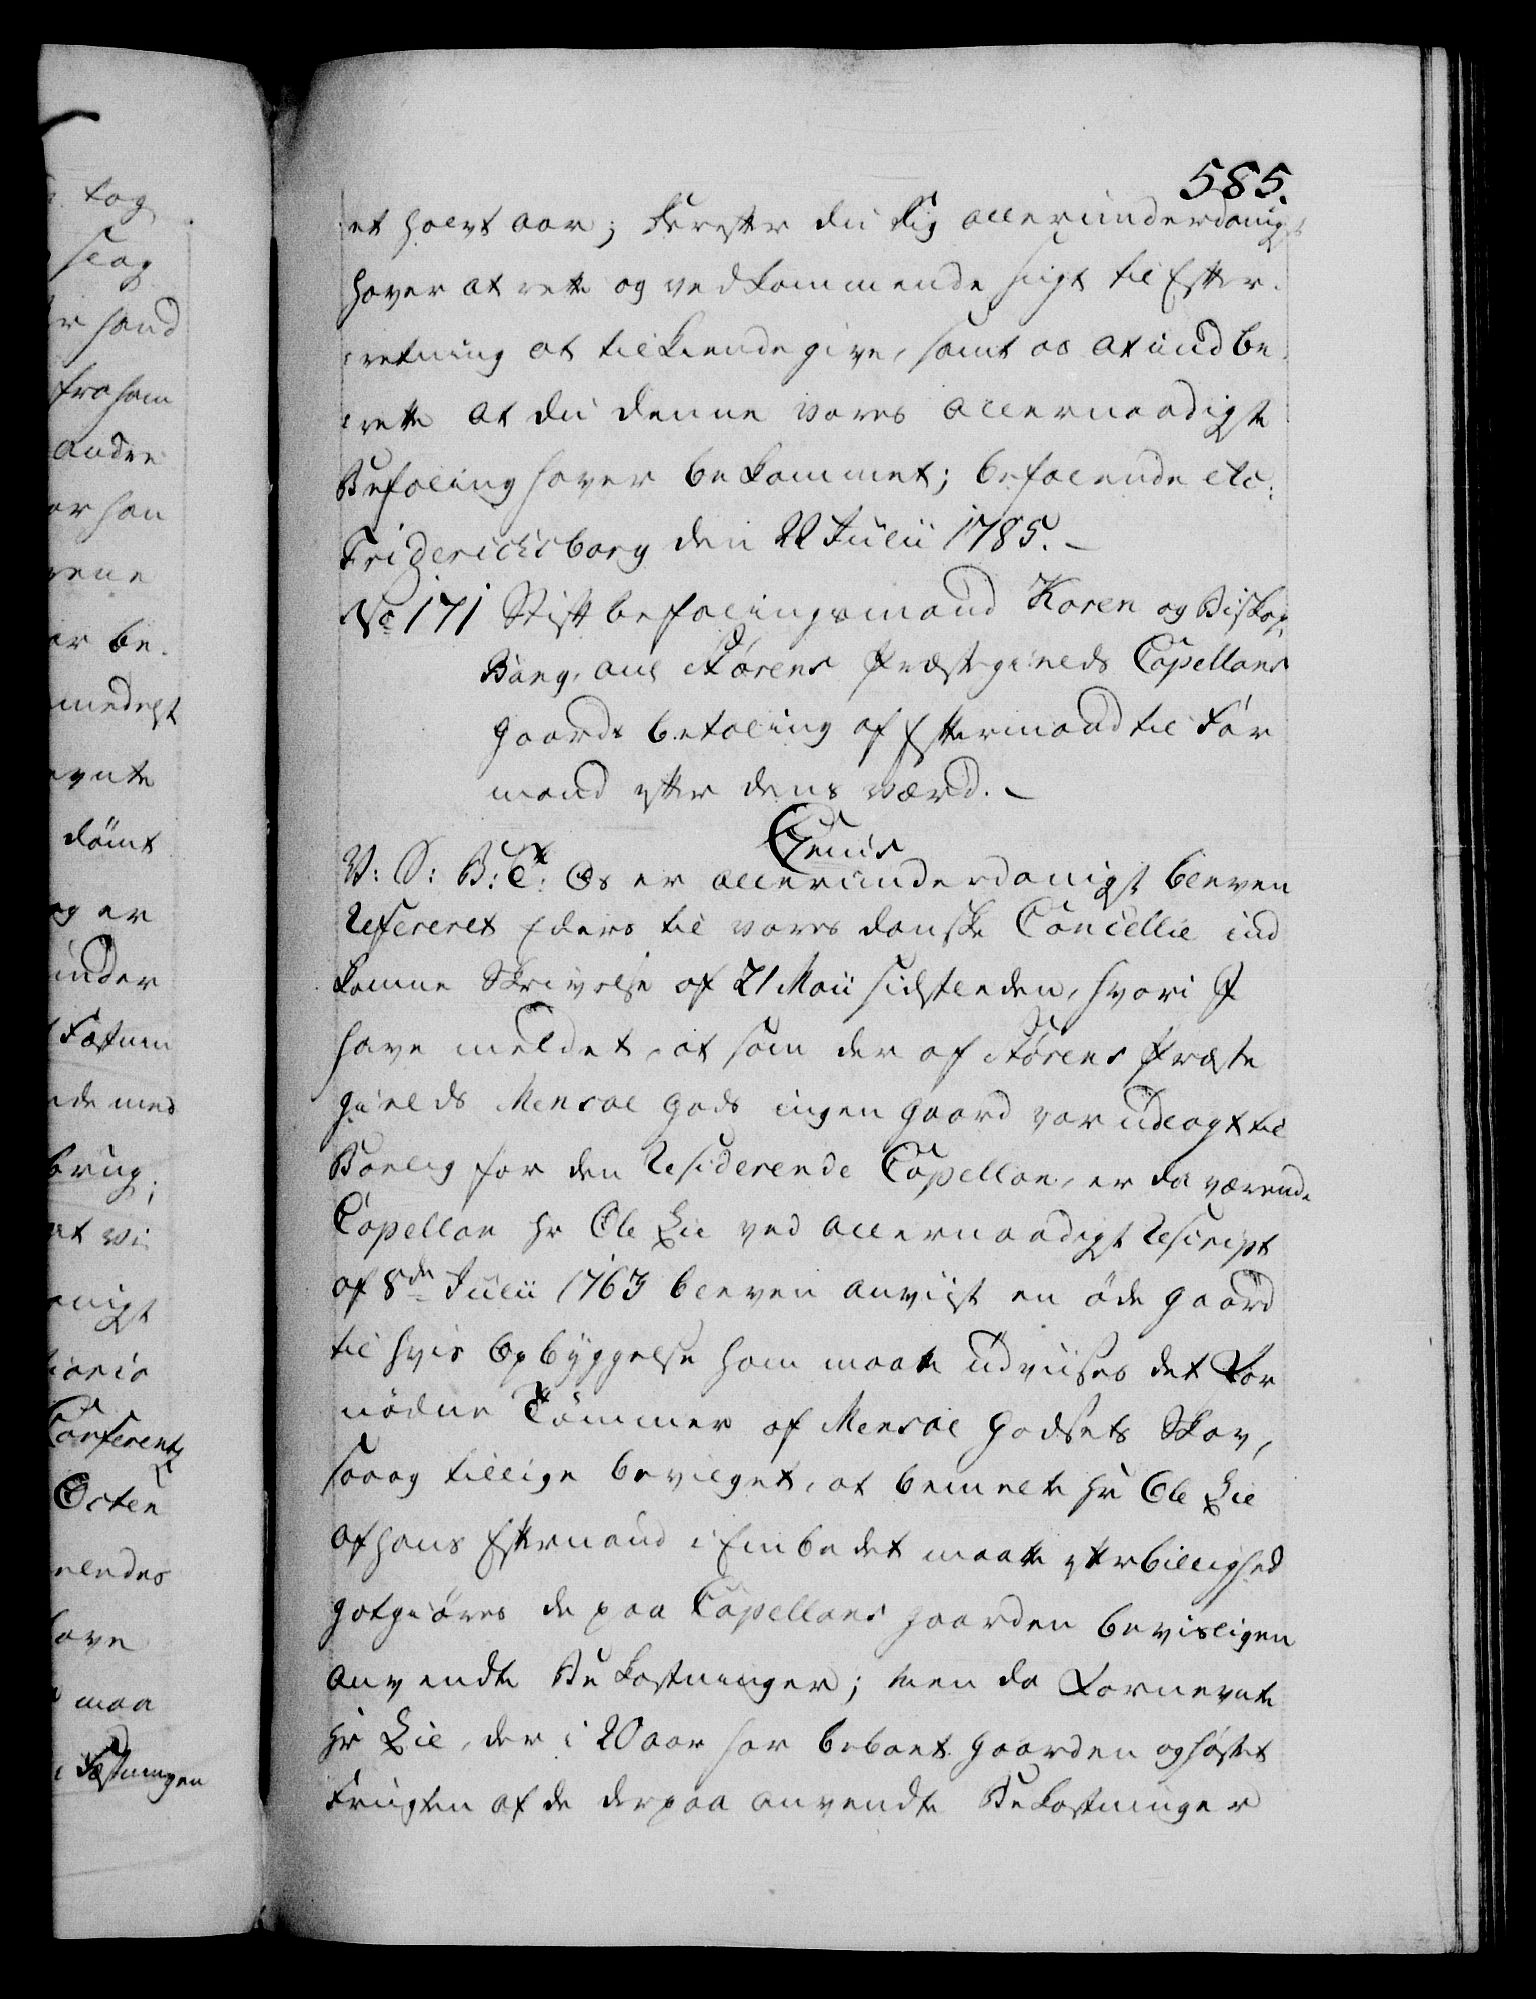 585.
et halvt aar; herefter du dig allerunderdanigst
haver at rette og vedkommende sligt til Efter¬
retning at tilkiendegive, samt os at indbe¬
rette at du denne vores allernaadigste
Befaling haver bekommet; befalende etc:
Friderichsborg den 22 Julii 1785. –
No 171 Stiftbefalingsmand Koren og Biskop
Bang, anl Størens Præstegields Capellans
gaards betaling af Eftermand til For
mand efter dens værd. –
Genis
V: S: B: C: Os er allerunderdanigst bleven
Refereret Eders til vores danske Cancellie ind
komne Skrivelse af 21 Maii sidstleden, hvori I
have meldet, at som der af Størens Præste
gields Mensal gods ingen gaard var udlagt til
Boelig for den Residerende Capellan, er da værende
Capellan Hr Ole Lie ved allernaadigst Rescript
af 8de Julii 1763 bleven anviist en øde gaard
til hvis Opbyggelse ham maate udviises det For
nødne Tømmer af Mensal Godsets Skov,
saa og tillige bevilget, at bemelte Hr Ole Lie
af hans Eftermand i Embedet maatte efter billighed
gotgiøres de paa Capellans gaarden beviisligen
anvendte Bekostninger; men da Fornevnte
Hr Lie, der i 20 aar har beboet gaarden og høstet
Frugten af de derpaa anvendte Bekostninger
tog
slag
hand
fra ham
andre
or han
be¬
medelst
dømt
og er
under
med
brug;
at vi
Conferentz
Octen
have
maa
Fæstningen